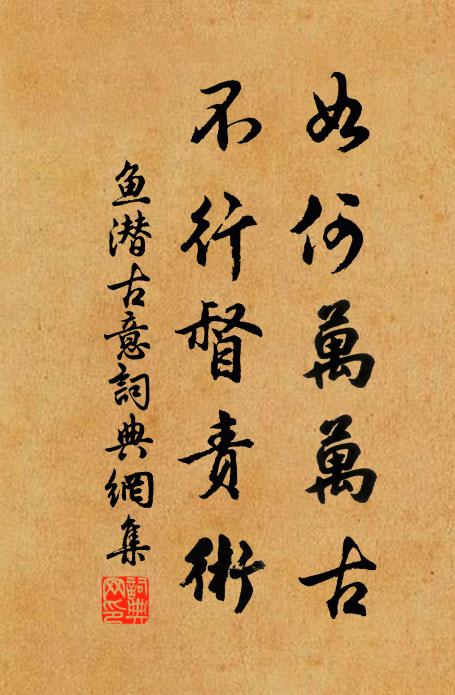 如何萬萬古
不行督責術
鱼潜古意詞典網集
詞典網印